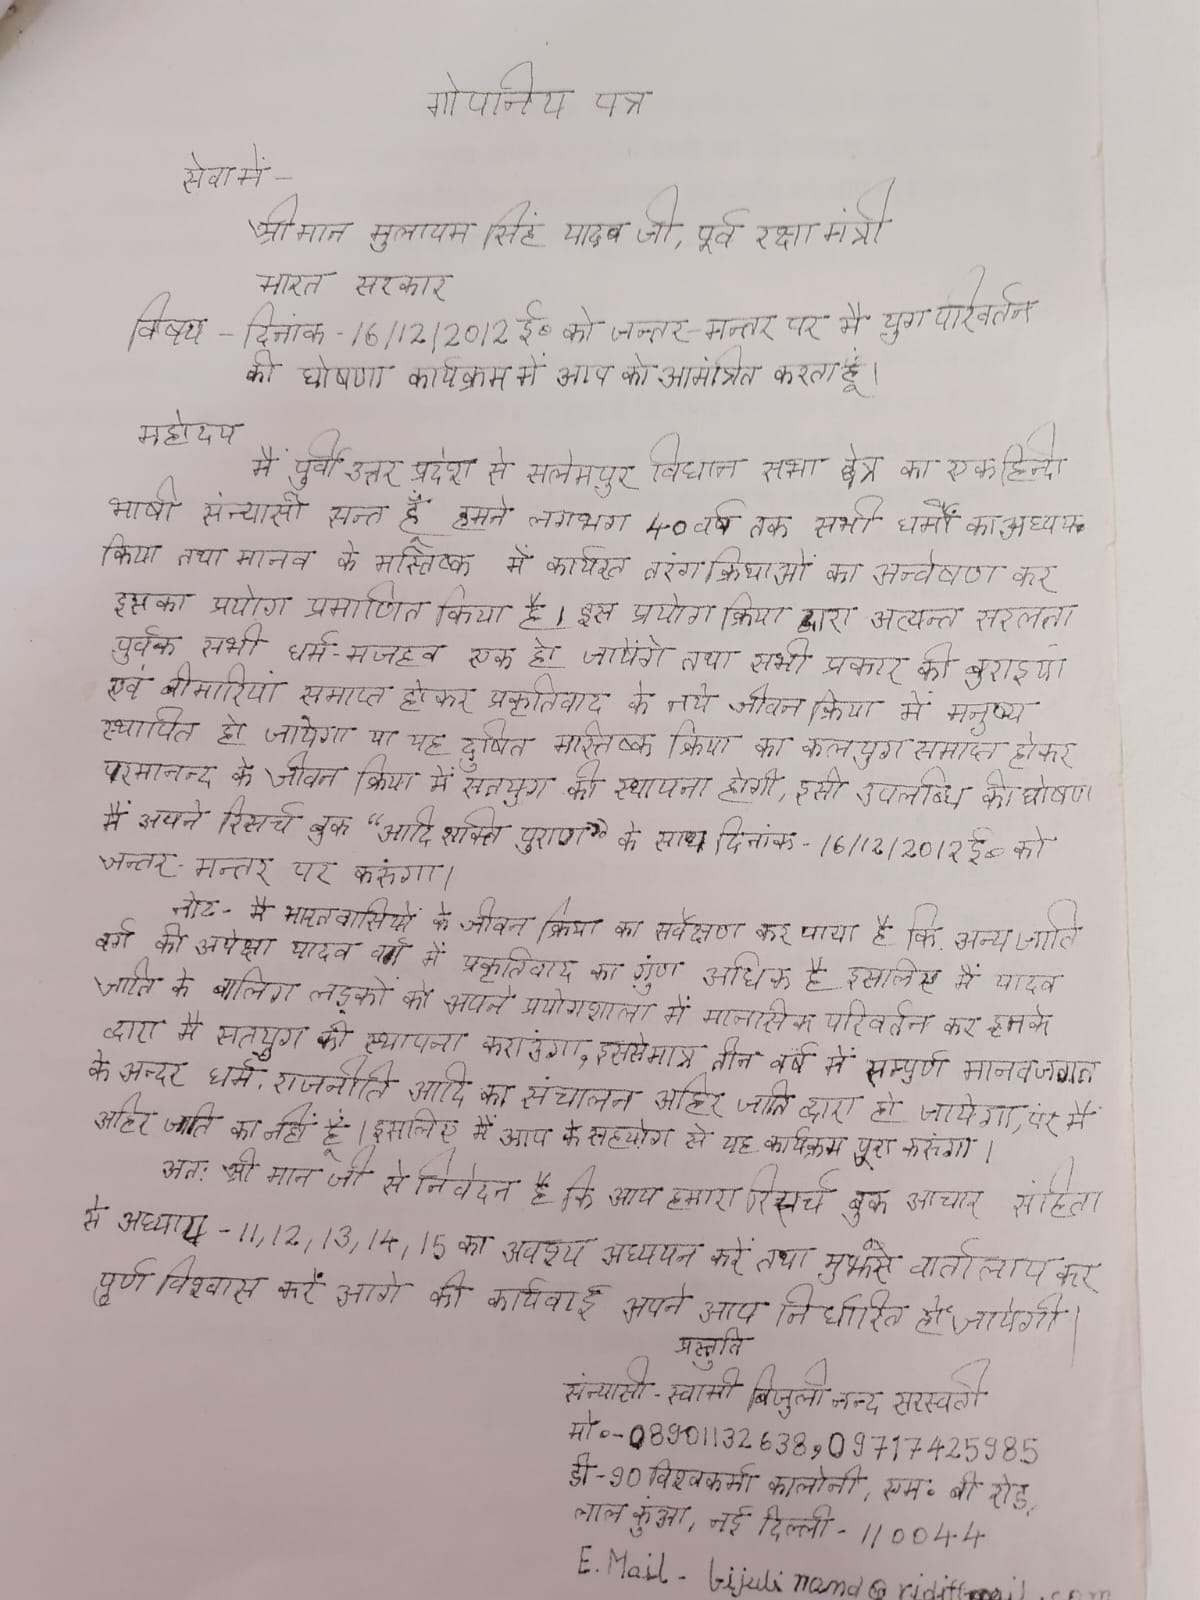 गोपनिय पत्र
सेवा में -
श्री मान मुलायम सिंह यादव जी, पूर्व रक्षा मंत्री
भारत सरकार
विषय - दिनांक - 16/12/2012 ई० को जन्तर-मन्तर पर मै युग परिवर्तन
की घोषणा कार्यक्रम में आप को आमंत्रित करता हूं।
महोदय
मैं पुर्वी उत्तर प्रदेश से सलेमपुर विधान सभा क्षेत्र का एक हिन्दी
भाषी संन्यासी सन्त हूँ हमने लगभग 40 वर्ष तक सभी धर्मों का अध्ययन
किया तथा मानव के मस्तिष्क में कार्यरत तरंग क्रियाओं का अन्वेषण कर
इसका प्रयोग प्रमाणित किया है। इस प्रयोग क्रिया द्वारा अत्यन्त सरलता
पुर्वक सभी धर्म-मजहव एक हो जायेंगे तथा सभी प्रकार की बुराइयां
एवं बीमारियां समाप्त होकर प्रकृतिवाद के नये जीवन क्रिया में मनुष्य
स्थापित हो जायेगा या यह दुषित मस्तिष्क क्रिया का कलयुग समाप्त होकर
परमानन्द के जीवन क्रिया में सतयुग की स्थापना होगी, इसी उपलब्धि की घोषणा
मैं अपने रिसर्च बुक "आदि शक्ति पुराण" के साथ दिनांक - 16/12/2012 ई० को
जन्तर-मन्तर पर करूंगा।
नोट - मै भारतवासियों के जीवन क्रिया का सर्वेक्षण कर पाया है कि. अन्य जाति
वर्ग की अपेक्षा यादव वर्ग में प्रकृतिवाद का गुंण अधिक है इसलिए मैं यादव
जाति के बालिग लड़कों को अपने प्रयोगशाला में मानसिक परिवर्तन कर इनके
द्वारा मै सतयुग की स्थापना कराउंगा, इससे मात्र तीन वर्ष में सम्पुर्ण मानव जगत
के अन्दर धर्म, राजनीति आदि का संचालन अहिर जाति द्वारा हो जायेगा, पर मैं
अहिर जाति का नहीं हूं। इसलिए मैं आप के सहयोग से यह कार्यक्रम पूरा करुंगा।
अत: श्री मान जी से निवेदन है कि आप हमारा रिसर्च बुक आचार संहिता
से अध्याय - 11, 12, 13, 14, 15 का अवश्य अध्ययन करें तथा मुझसे वार्तालाप कर
पूर्ण विश्वास करें आगे की कार्यवाई अपने आप निर्धारित हो जायेगी।
प्रस्तुति
संन्यासी - स्वामी बिजुली नन्द सरस्वती
मो०-08901132638, 09717425985
डी-90 विश्वकर्मा कालोनी, एम. बी रोड,
लाल कुंआ, नई दिल्ली - 110044
E. Mail - bijuli nand@ridiffmail.com